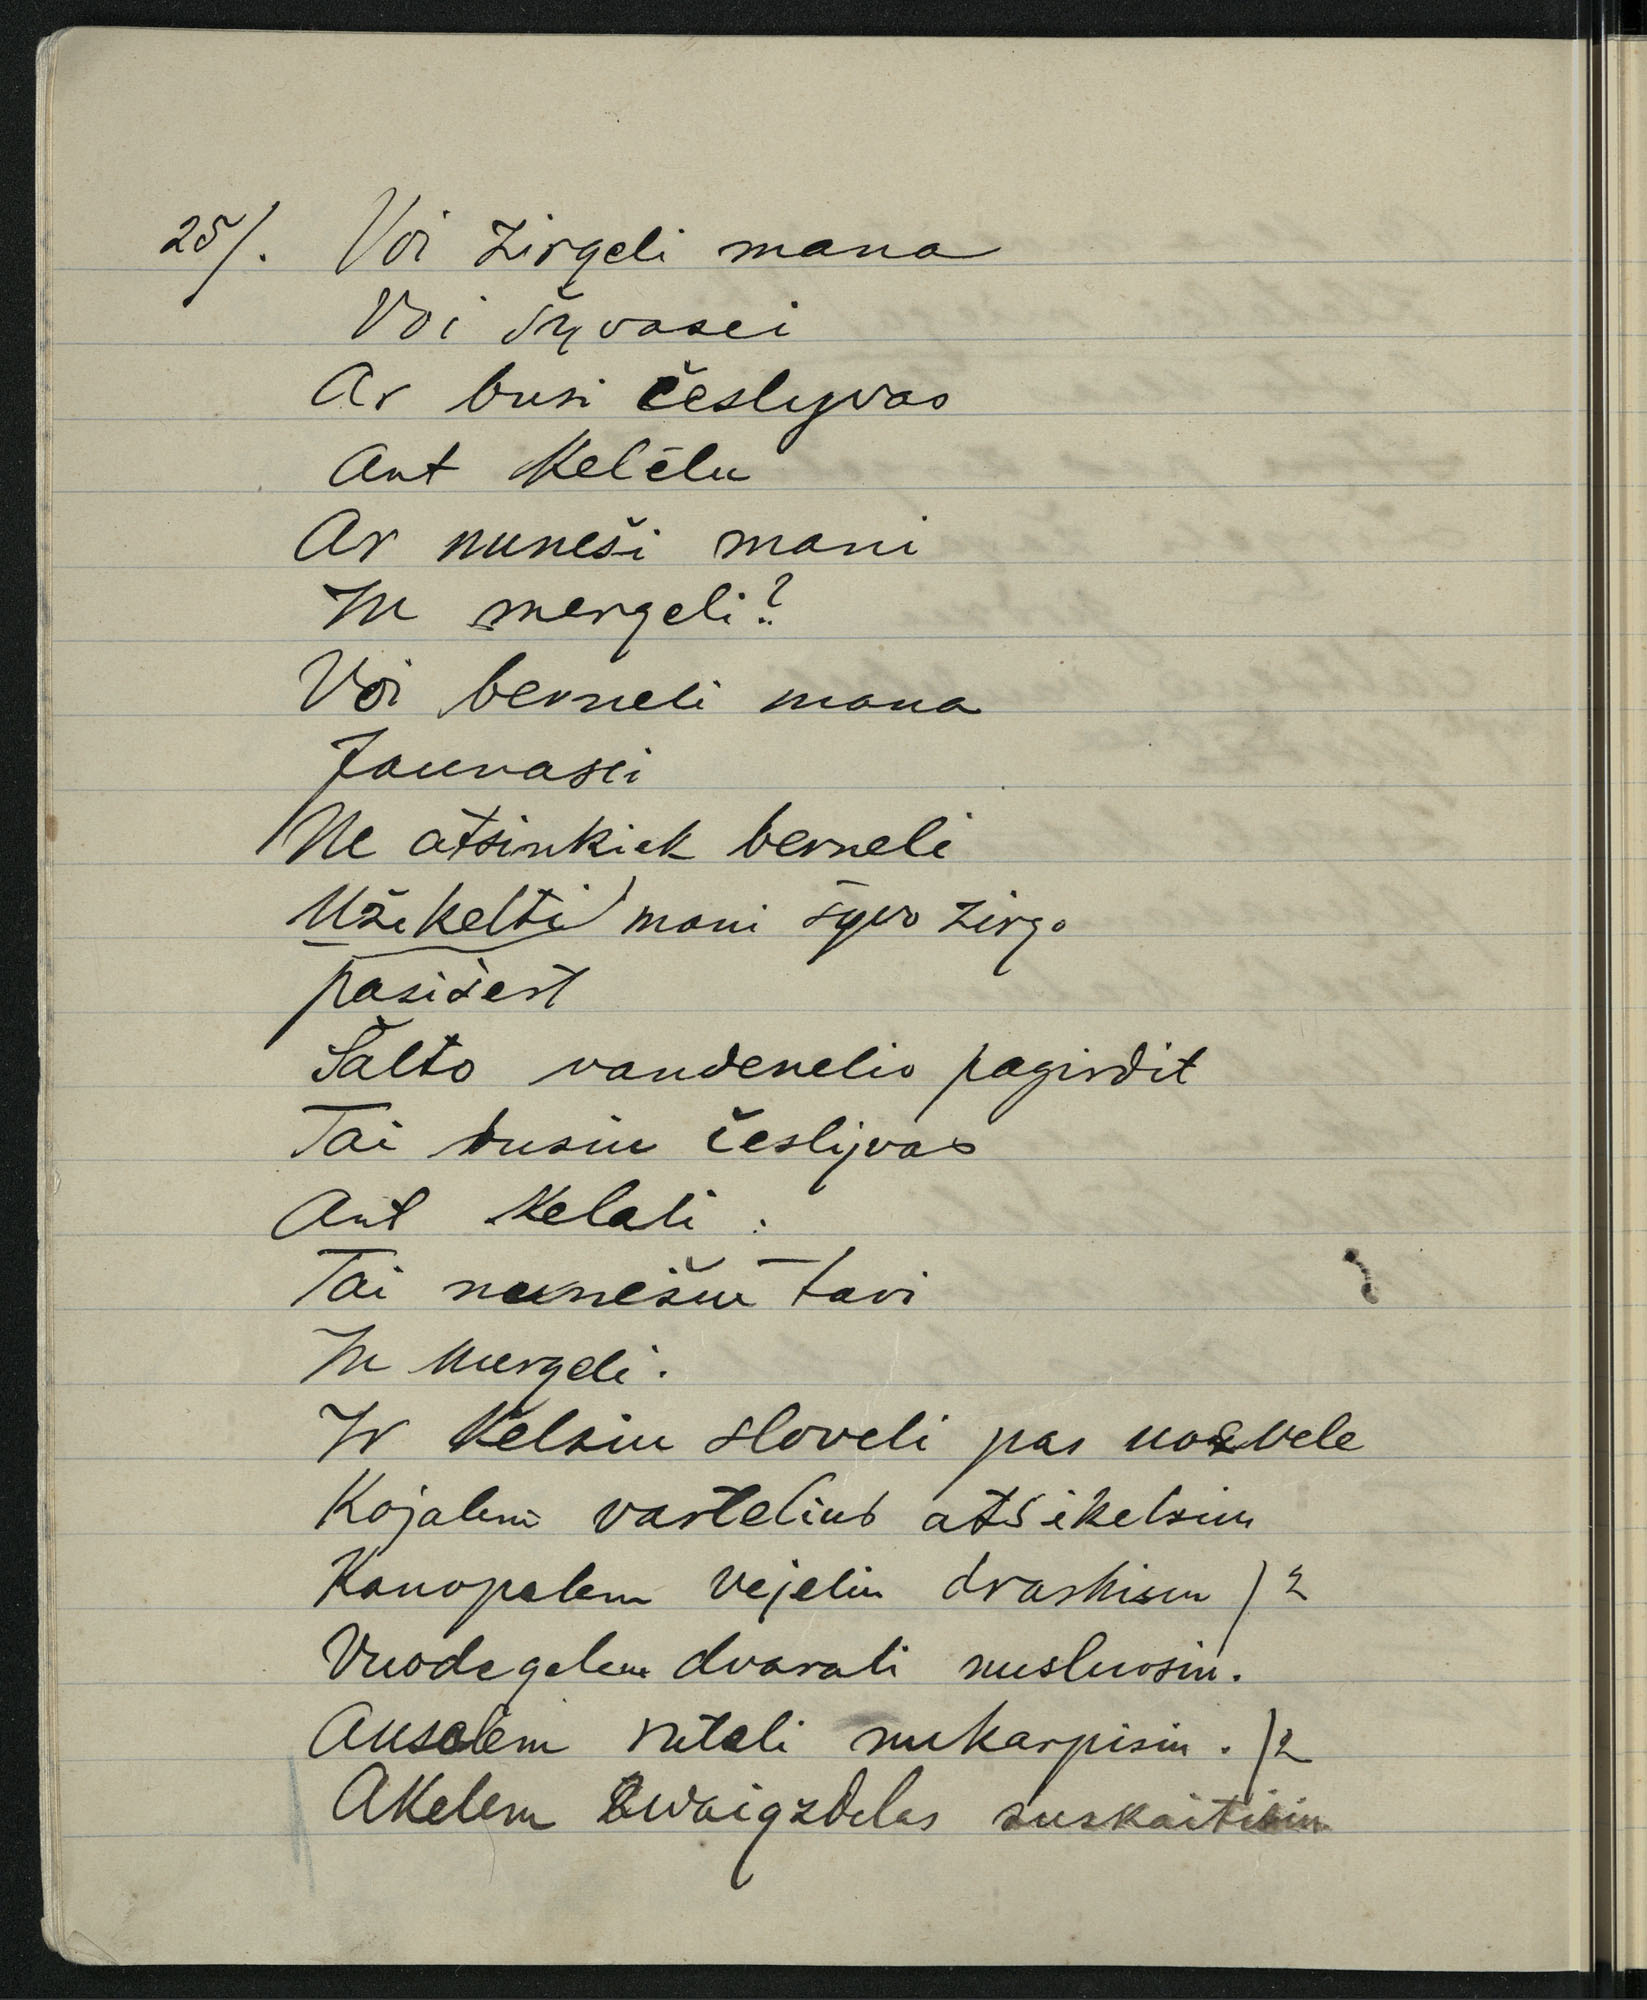 25/. Voi zirgeli mana
Voi šyvasei
Ar busi česlyvas
Ant Kelelu
Ar nuneši mani
In mergeli?
Voi berneli mana
Jaunasei
Ne atsinkiek berneli
Užekelti mani šyvo zirgo
pasišert
Šalto vandenelio pagirdit
Tai busiu česlyvas
Ant Kelali.
Tai nunešiu tavi
In mergeli.
Ir Kelsiu sloveli pas uošvele
Kojalem vartelius atsikelsiu
Kanopalem vejeliu draskisiu )2
Vuodegelem dvarali nusluosiu.
Auselem rutali nukarpisiu. )2
Akelem zwaigzdelas suskaitisiu